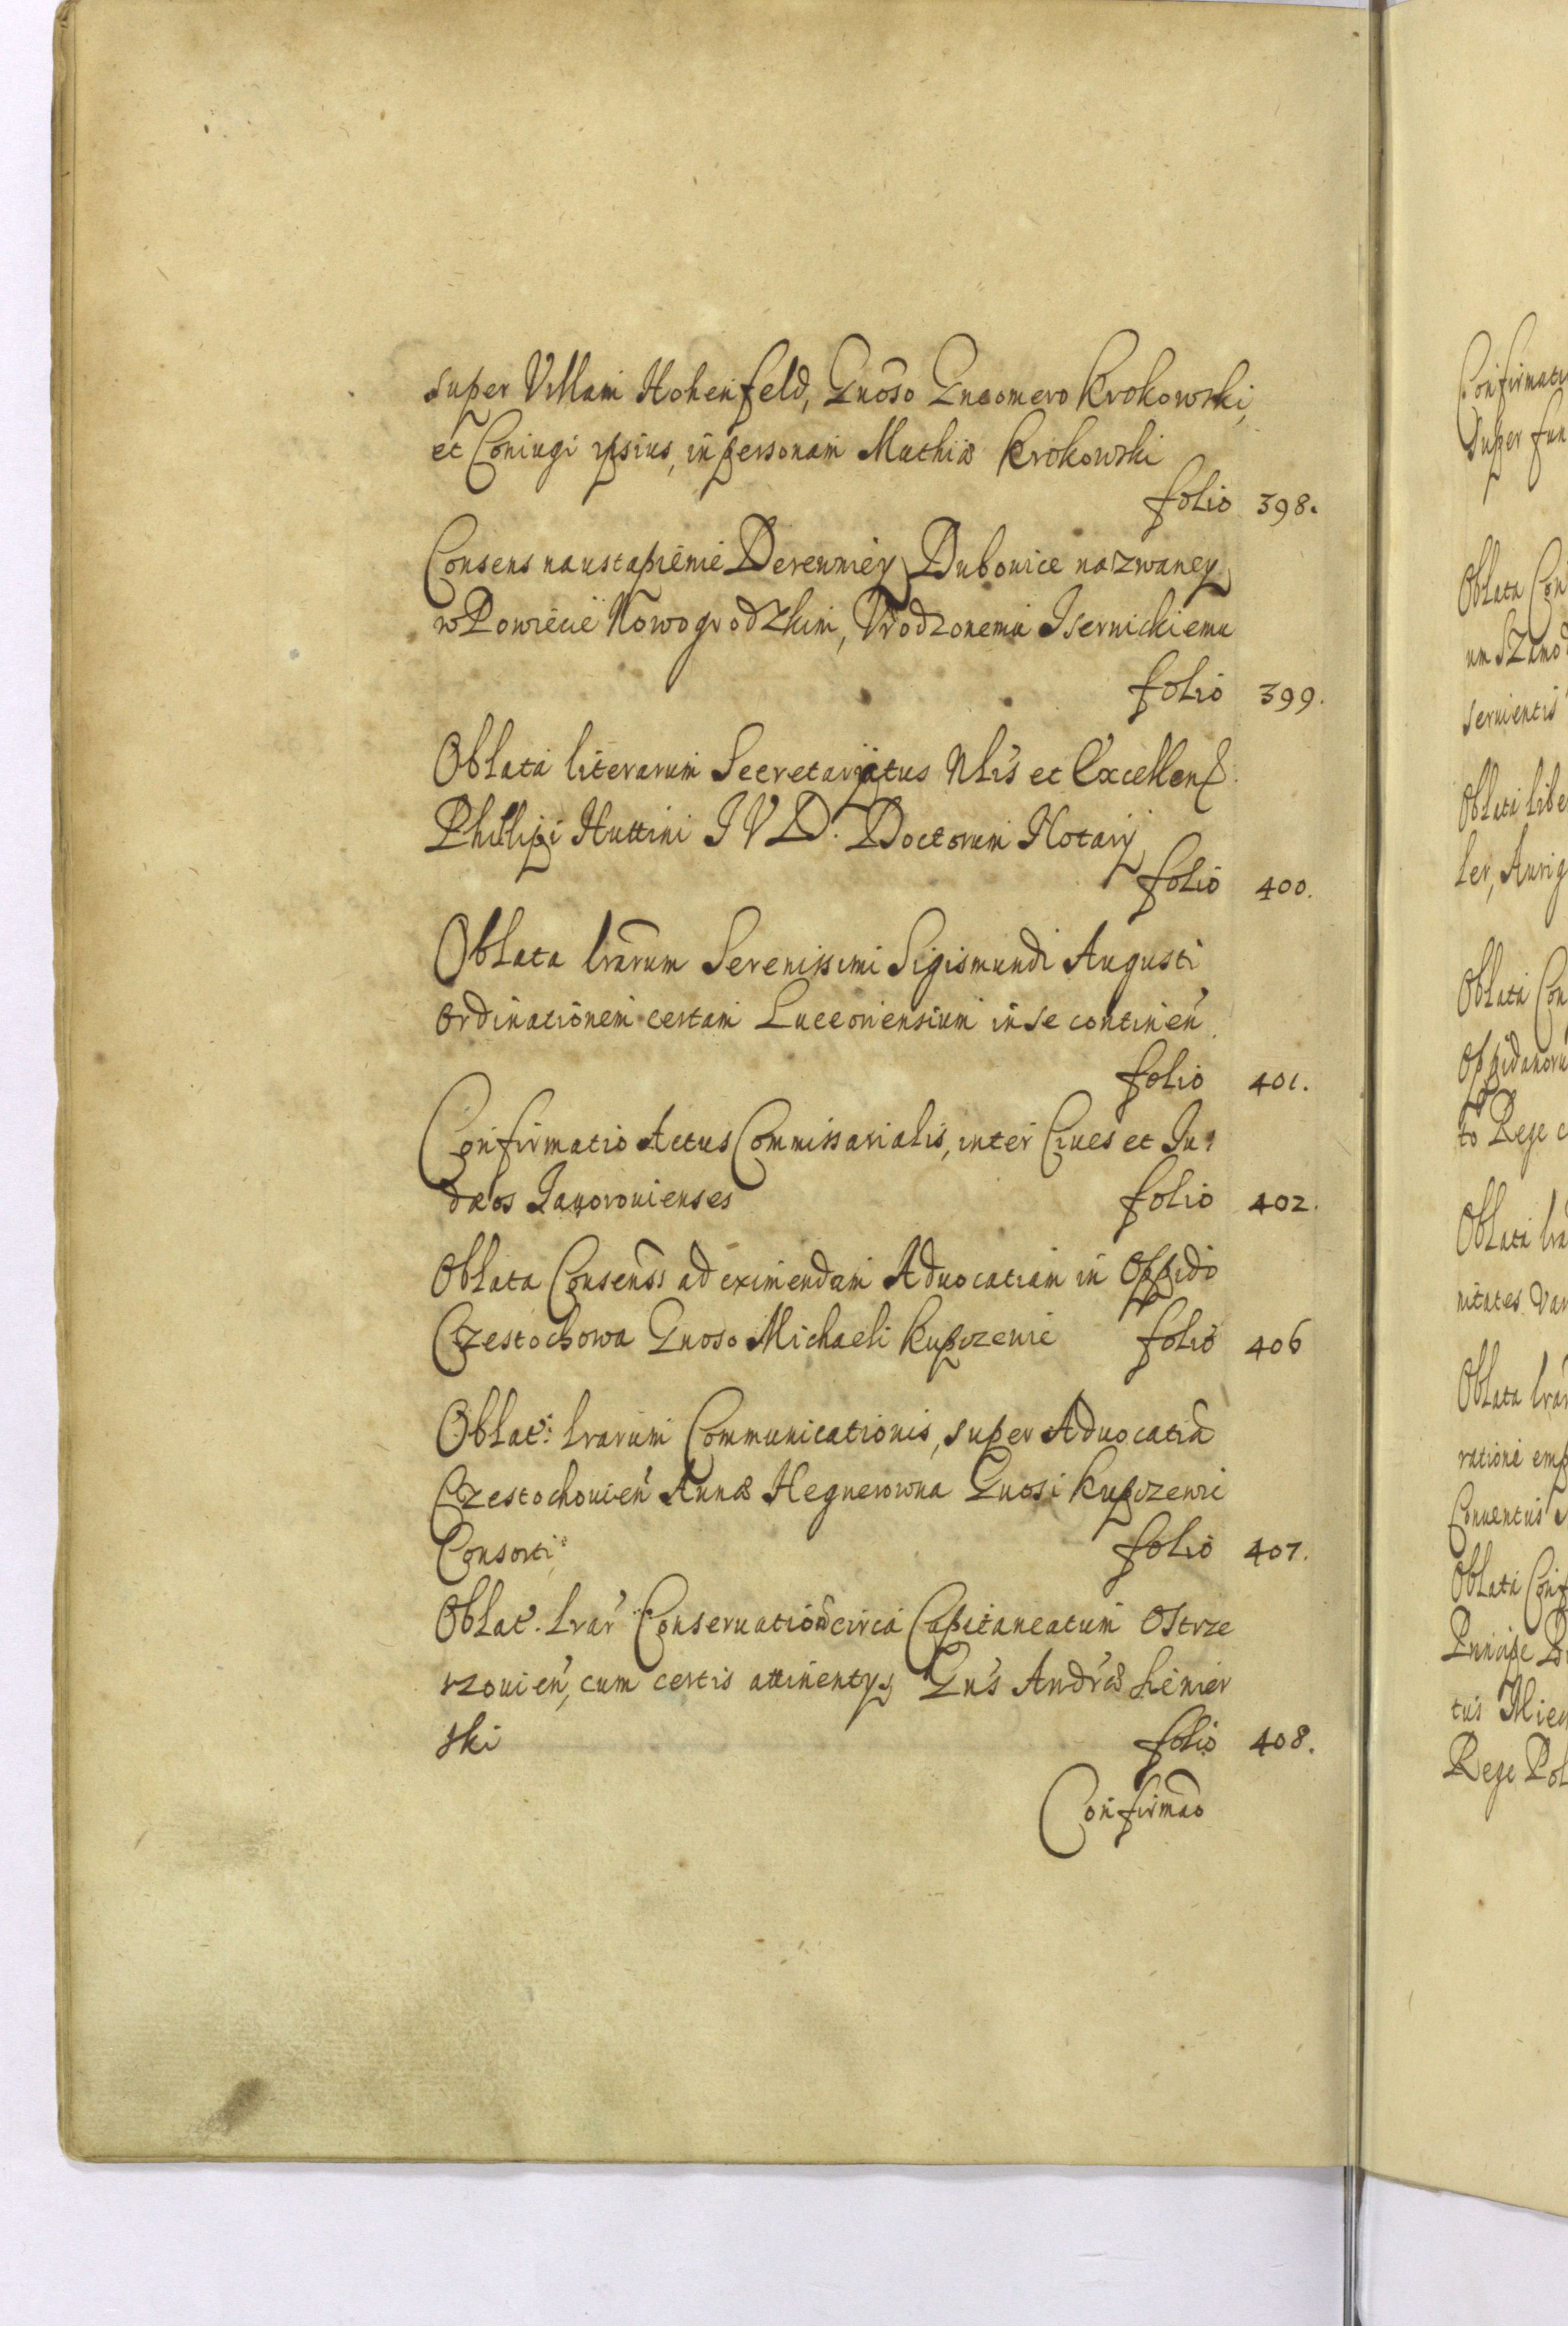 super Villam Hohenfeld, Gnoso Gneomero Krokowski,
et Coniugi ipsius, in personam Mathiæ Krokowski
folio 398.
Consens na ustąpienie Derewniey Dubowice nazwaney
w Powiecie Nowogrodzkim, Vrodzonemu Isernickiemu
folio 399.
Oblata literarum Secretariatus Nblis et Excellent:
Philipi Huttini I V D. Doctorum Notarij
folio 400.
Oblata lrarum Serenissimi Sigismundi Augusti
ordinationem certam Luceoriensium in se continen
folio 401.
Confirmatio Actus Commissarialis, inter Ciues et Iu-
dæos Iaworouienses folio 402.
Oblata Consenss ad eximendam Aduocatiam in Oppido
Czestochowa Gnoso Michaeli Kupczewic folio 406
Oblat: lrarum Communicationis, super Aduocatia
Czestochouien Annæ Hegnerowna Gnosi Kupczewic
Consorti folio 407.
Oblat. lrar Conseruation circa Capitaneatum Ostrze
rzouien, cum certis attinentys Gns Andreæ Lenier
ski folio 408.
Confirmao
Confirmati
Super fun
Oblata Con
um Szamo
seruientis
Oblati libe
ler, Aurig
Oblata Con
Oppidanoru
to Rege c
Oblata lra
nitates Var
Oblata lrar
ratione emp
Conuentus
Oblata Conf
Principe
tus Mien
Rege Pol